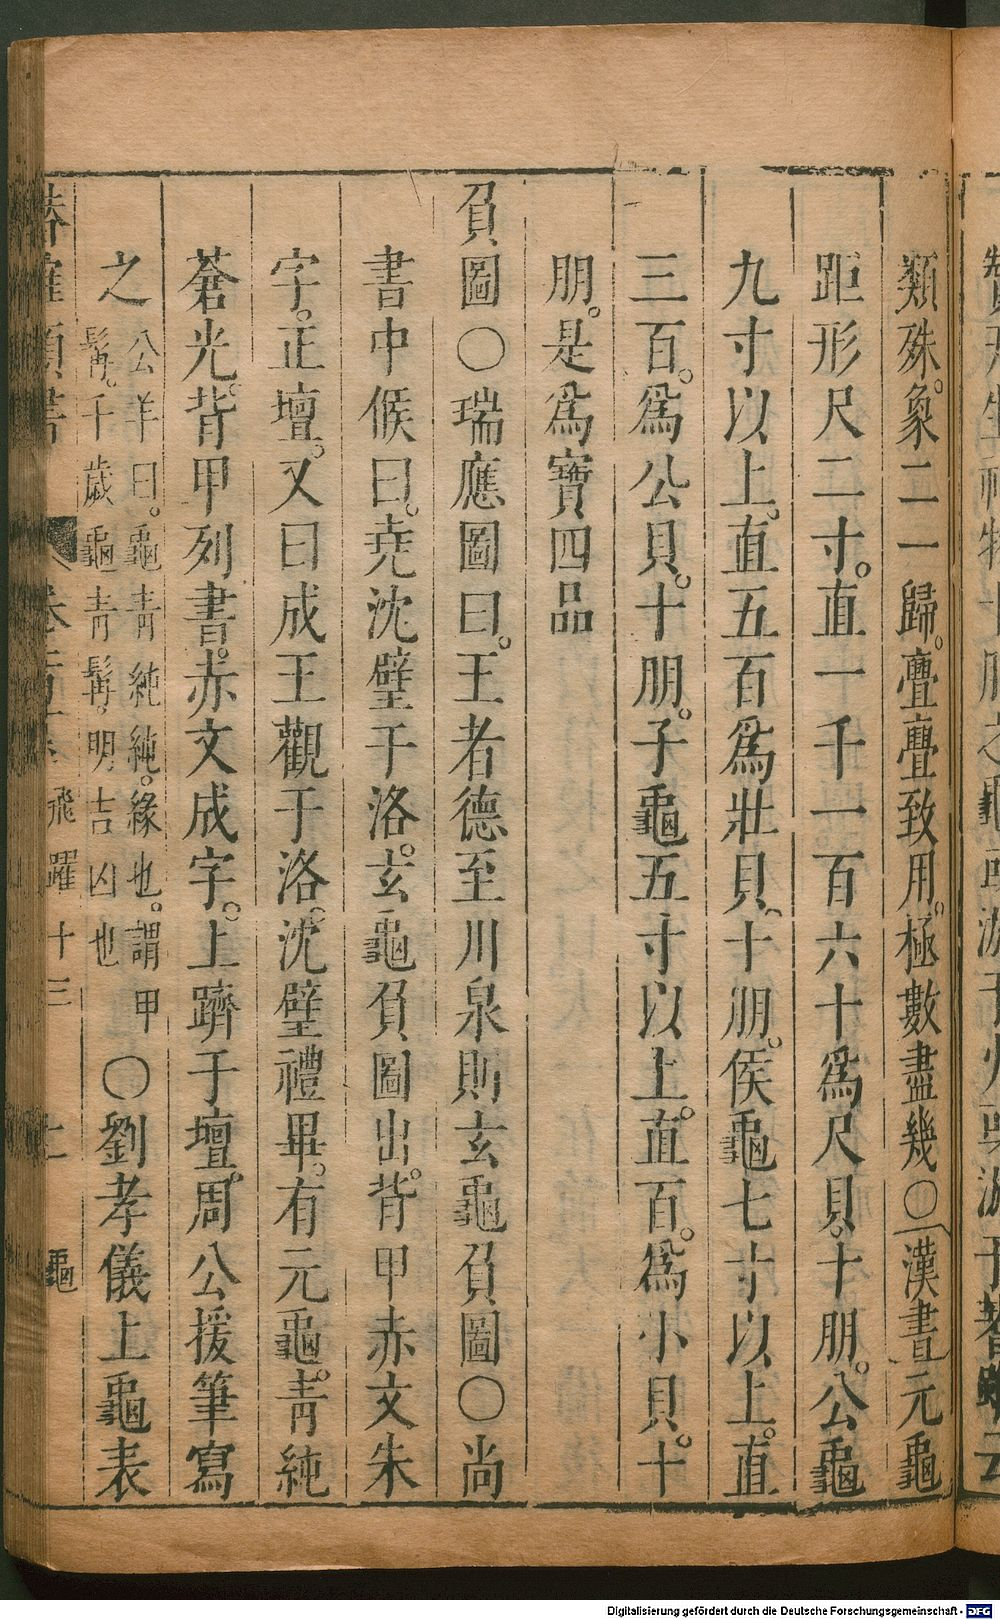 類殊。象二一歸。亹亹致用。極數盡幾〇漢書元龜
距形尺二寸。直一千一百六十爲尺貝。十朋。公龜
九寸以上。直五百爲壯貝。十朋。侯龜七寸以上。直
三百。爲公貝。十朋。子龜五寸以上。直百。爲小貝。十
朋。是爲寶四品
負圖〇瑞應圖曰。王者德至川泉則玄龜負圖〇尚
書中候曰。堯沈璧于洛。玄龜負圖出。背甲赤文朱
字。正壇。又曰成王觀于洛。沈璧禮畢。有元龜。青純
蒼光。背甲列書。赤文成字。上躋于壇。周公援筆寫
之
公羊曰。龜青純純。緣也。謂甲
髯。千歲龜青髯。明吉凶也
〇劉孝儀上龜表
飛躍 十三
龜
Digitalisierung gefördert durch die Deutsche Forschungsgemeinschaft - DFG